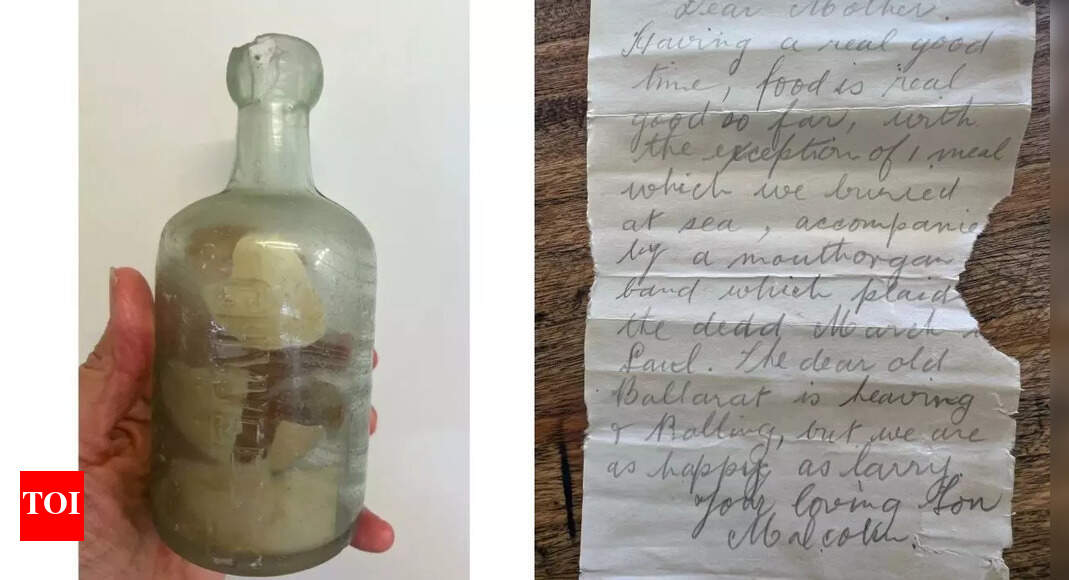 TOI
Dear Mother.
Having a real good
time, food is real
good so far, with
the exception of 1 meal
which we buried
at sea, accompanie
by a mouthorgan
band which plaid
the dedd March
Saul. The dear old
Ballarat is heaving
& Rolling, but we are
as happy as larry.
Your loving Son
Malcolm.